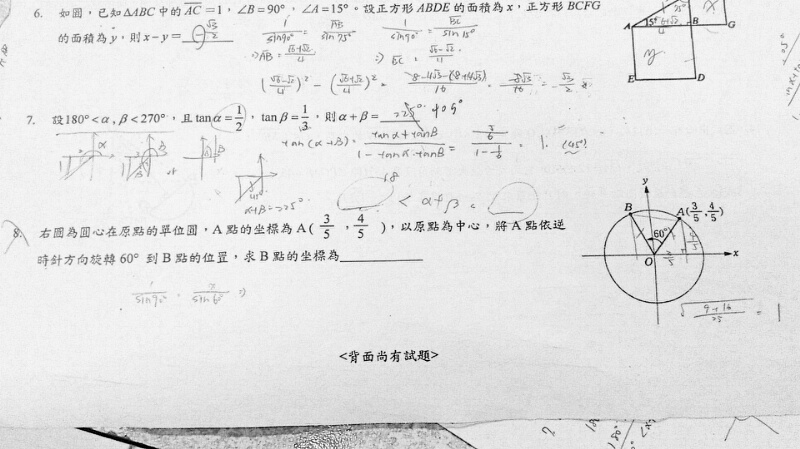 6. 如圖，已知△ABC 中的 AC = 1，∠B = 90°，∠A = 15°。設正方形 ABDE 的面積為 x，正方形 BCFG
的面積為 y，則 x − y = -√3/2
1/sin90° = AB/sin75° 1/sin90° = BC/sin15°
⇒ AB = (√6+√2)/4 ⇒ BC = (√6-√2)/4
((√6-√2)/4)² - ((√6+√2)/4)² = (8-4√3-(8+4√3))/16 = -8√3/16 = -√3/2
x
75°
A 15° (√6+√2)/4 B G
y
E D
7. 設180° < α , β < 270°，且 tan α = 1/2，tan β = 1/3，則 α + β = 225° 405°
tan(α+β) = (tanα+tanβ)/(1-tanα·tanβ) = (5/6)/(1-1/6) = 1. (45°)
α+β=225°
< α+β <
8. 右圖為圓心在原點的單位圓，A 點的坐標為 A( 3/5 , 4/5 )，以原點為中心，將 A 點依逆
時針方向旋轉 60° 到 B 點的位置，求 B 點的坐標為
1/sin90° = x/sin60° ⇒
y
B A(3/5, 4/5)
60° 4/5
O 3/5 x
√((9+16)/25) = 1
<背面尚有試題>